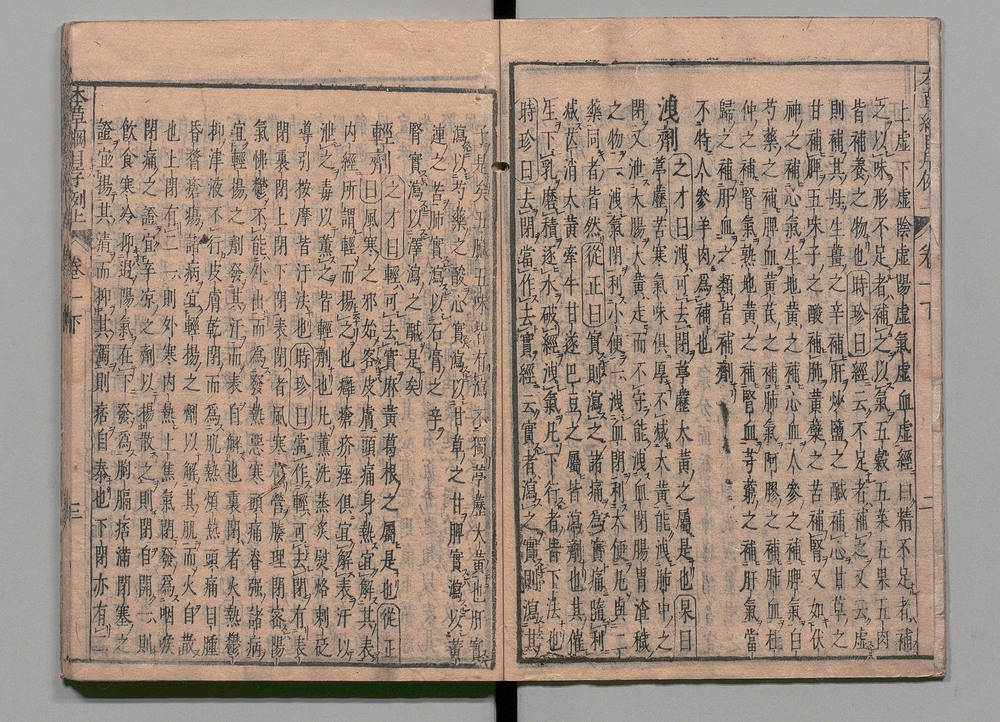 上虛下虛陰虛陽虛氣虛血虛經曰精不足者補
之以味形不足者補之以氣五穀五菜五果五肉
皆補養之物也時珍曰經云不足者補之又云虛
則補其母生薑之辛補肝炒鹽之鹹補心甘草之
甘補脾五味子之酸補肺黃蘗之苦補腎又如伏
神之補心氣生地黃之補心血人參之補脾氣白
芍藥之補脾血黃芪之補肺氣阿膠之補肺血杜
仲之補腎氣熟地黃之補腎血芎藭之補肝氣當
歸之補肝血之類皆補劑
不特人參羊肉爲補也
洩劑之才曰洩可去閉葶藶大黃之屬是也杲曰
葶藶苦寒氣味俱厚不減大黃能洩肺中之
閉又泄大腸大黃走而不守能洩血閉腸胃渣穢
之物一洩氣閉利小便一洩血閉利大便凡與二
藥同者皆然從正曰實則瀉之諸痛爲實痛隨利
減芒消大黃牽牛甘遂巴豆之屬皆瀉劑也其催
生下乳磨積逐水破經洩氣凡下行者皆下法也
時珍曰去閉當作去實經云實者瀉之實則瀉其
子是矣五臟五味皆有瀉不獨葶藶大黃也肝實
瀉以芍藥之酸心實瀉以甘草之甘脾實瀉以黃
連之苦肺實瀉以石膏之辛
腎實瀉以澤瀉之鹹是矣
輕劑之才曰輕可去實麻黃葛根之屬是也從正
曰風寒之邪始客皮膚頭痛身熱宜解其表
內經所謂輕而揚之也癰瘡疥痤俱宜解表汗以
泄之毒以薰之皆輕劑也凡薰洗蒸炙熨烙刺砭
導引按摩皆汗法也時珍曰當作輕可去閉有表
閉裏閉上閉下閉表閉者風寒傷營腠理閉密陽
氣怫鬱不能外出而爲發熱惡寒頭痛脊強諸病
宜輕揚之劑發其汗而表自解也裏閉者火熱鬱
抑津液不行皮膚乾閉而爲肌熱煩熱頭痛目腫
昏瞀瘡瘍諸病宜輕揚之劑以解其肌而火自散
也上閉有二一則外寒內熱上焦氣閉發爲咽喉
閉痛之證宜辛凉之劑以揚散之則閉自開一則
飲食寒冷抑遏陽氣在下發爲胸膈痞滿閉塞之
證宜揚其清而抑其濁則痞自泰也下閉亦有二
本草綱目序例上 卷一下 三